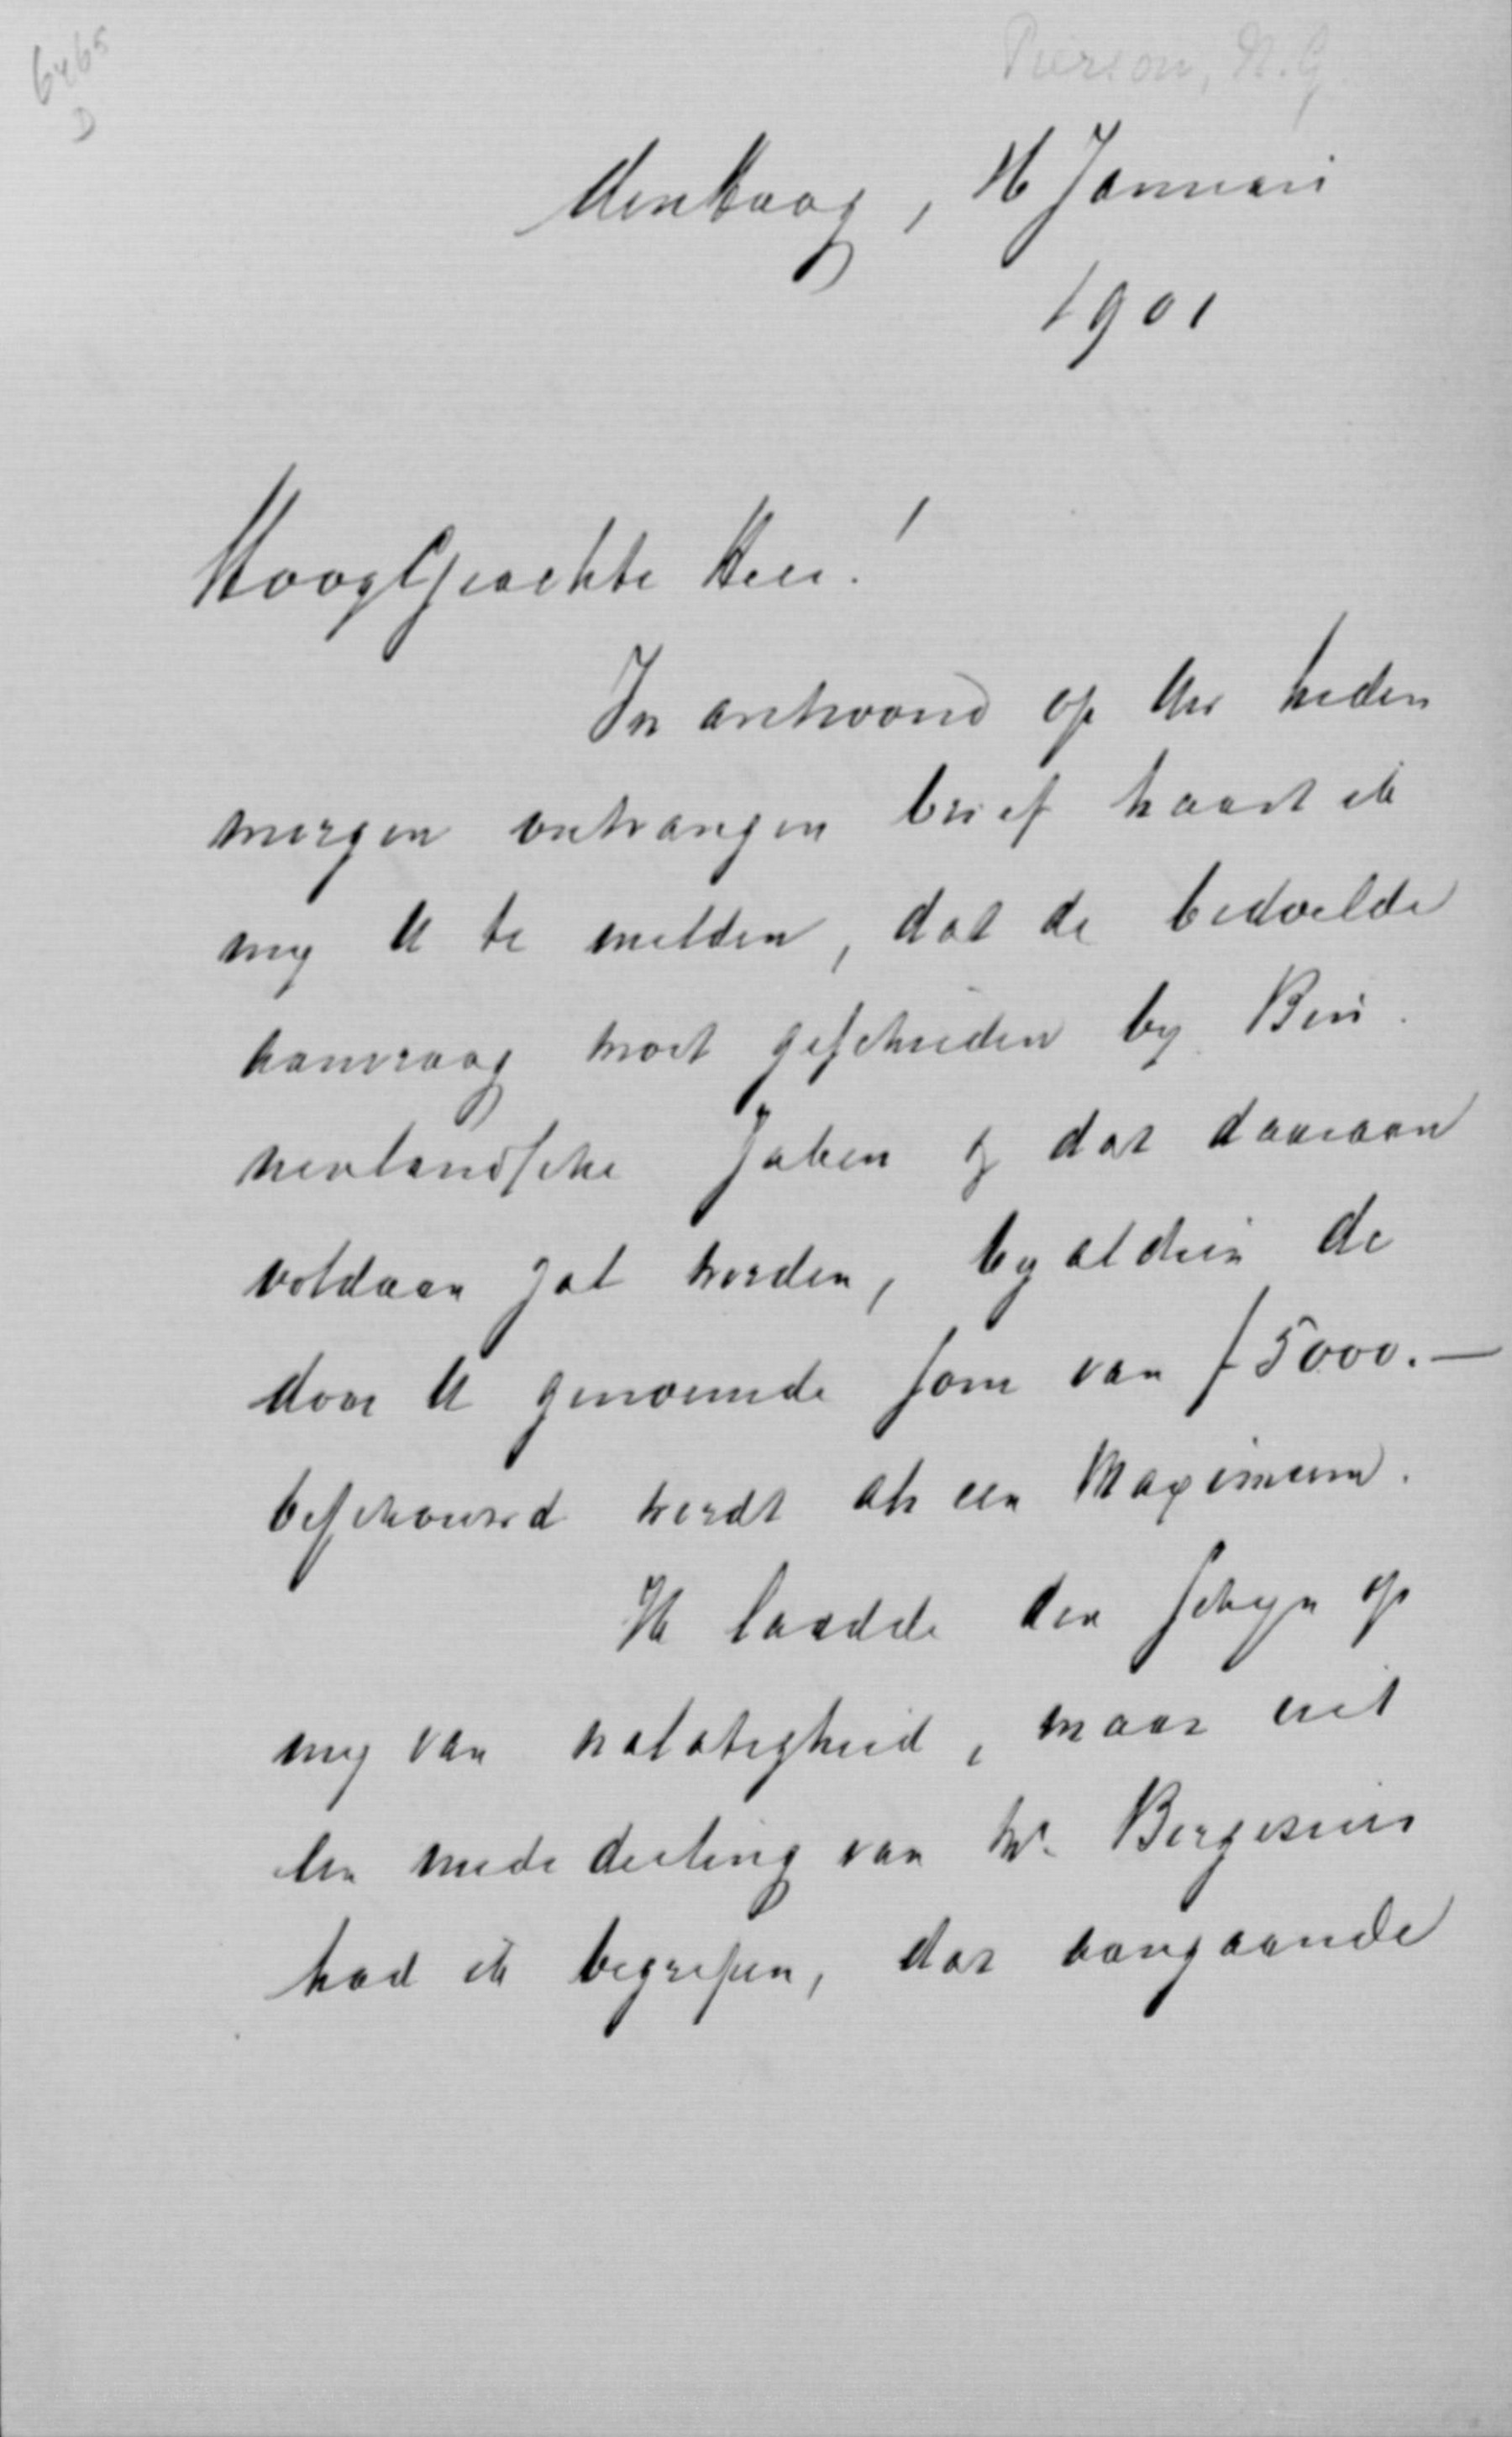 6465
D
Pierson, N.G.
den Haag, 16 Januari
1901
HoogGeachte Heer!
In antwoord op Uw heden
morgen ontvangen brief haast ik
my U te melden, dat de bedoelde
aanvraag moet geschieden by Bin-
nenlandsche Zaken & dat daaraan
voldaan zal worden, byaldien de
door U genoemde som van f 5000.—
beschouwd wordt als een Maximum.
Ik laadde den schyn op
my van nalatigheid, maar uit
een mededeeling van Mr. Borgesius
had ik begrepen, dat aangaande